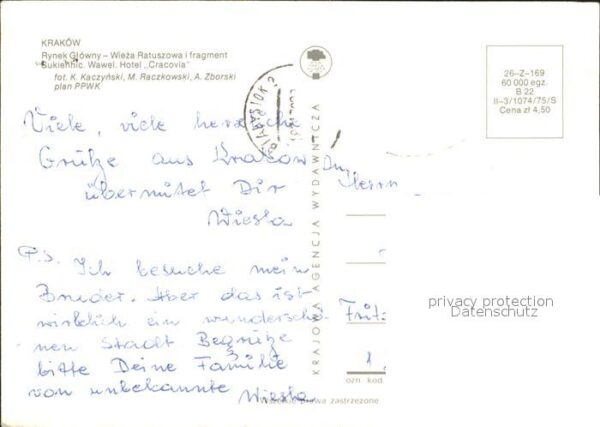 KRAKÓW
Rynek Główny – Wieża Ratuszowa i fragment
Sukiennic. Wawel. Hotel „Cracovia"
fot. K. Kaczyński, M. Raczkowski, A. Zborski
plan PPWK
26–Z–169
60 000 egz.
B 22
II–3/1074/75/S
Cena zł 4,50
KRAJOWA AGENCJA WYDAWNICZA
Viele, viele herzliche
Grütze aus Kraków
übermittet Dir
Wiesła
P.S. Ich besuche mein
Bruder. Aber das ist
wirklich ein wundersch
nen Stadt Begrütze
bitte Deine Familie
von unbekannte Wiesła
Herrn
Fritz
privacy protection
Datenschutz
ozn kod
prawa zastrzeżone